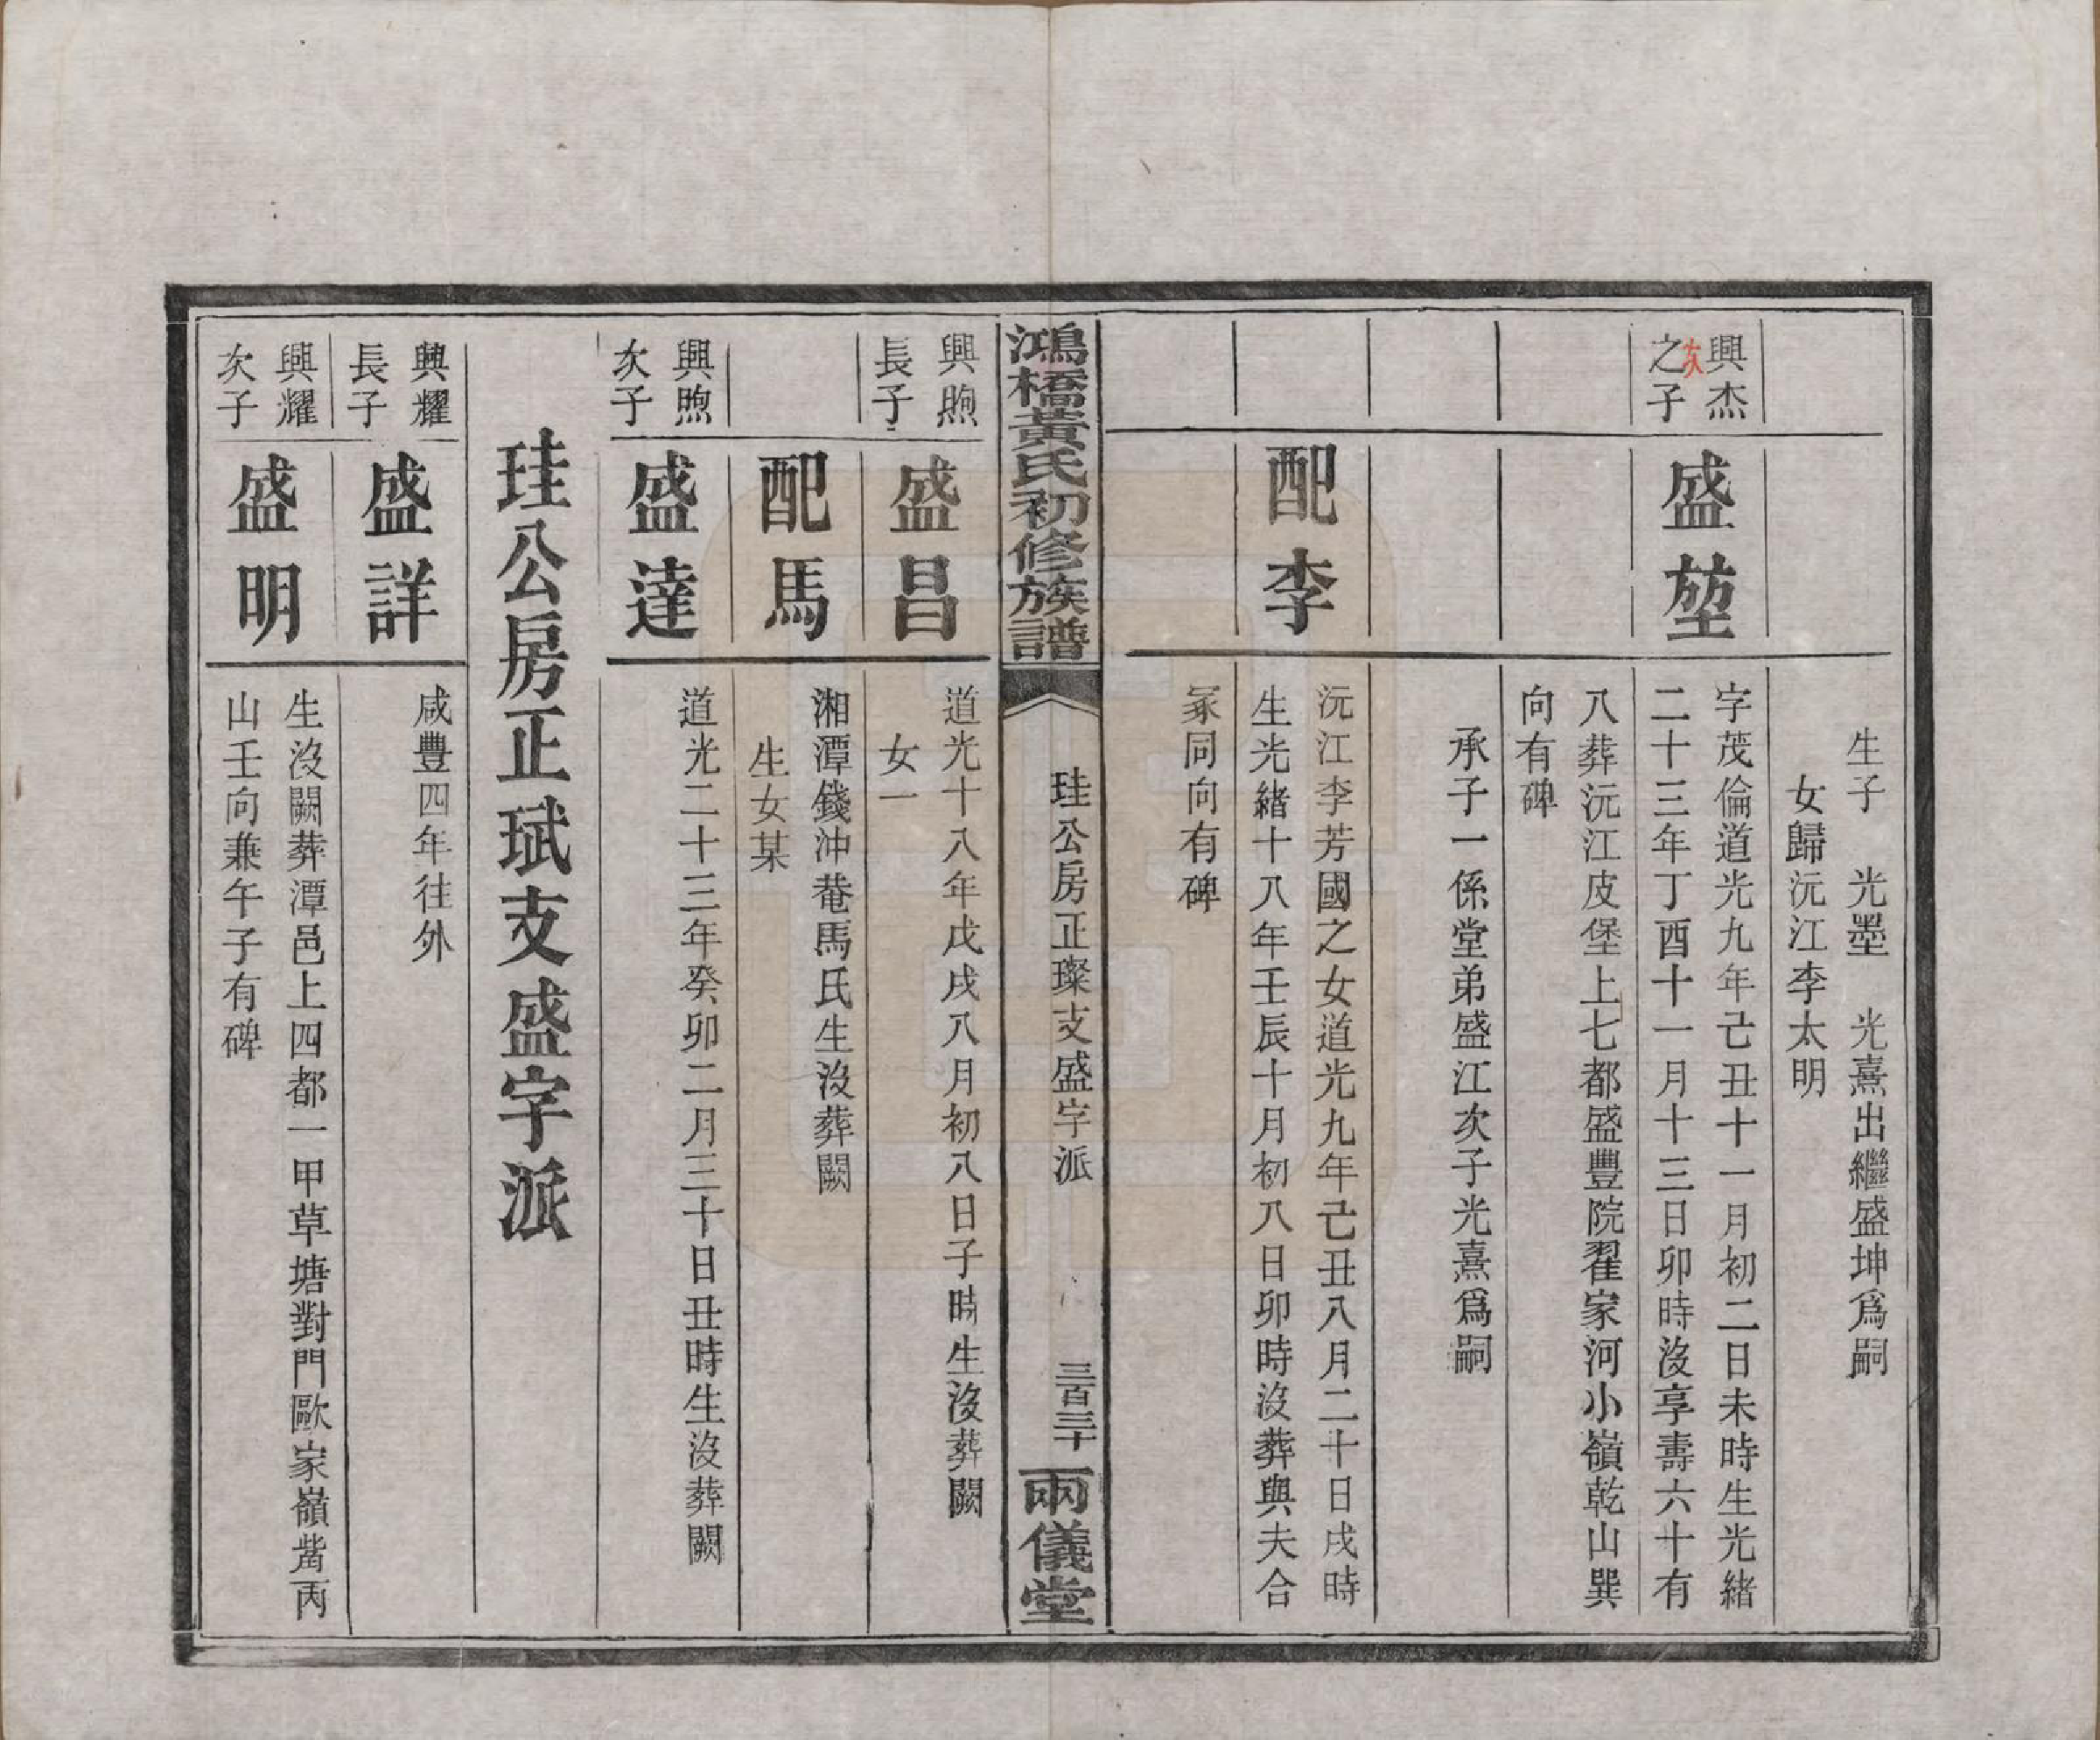 生子　光墨　光熹出繼盛坤爲嗣
女歸沅江李太明
興杰
次
之子
盛堃
字茂倫道光九年己丑十一月初二日未時生光緒
二十三年丁酉十一月十三日卯時沒享壽六十有
八葬沅江皮堡上七都盛豐院翟家河小嶺乾山巽
向有碑
承子一係堂弟盛江次子光熹爲嗣
配李
沅江李芳國之女道光九年己丑八月二十日戌時
生光緒十八年壬辰十月初八日卯時沒葬與夫合
冢同向有碑
鴻橋黃氏初修族譜
珪公房正璨支盛字派
三百三十
兩儀堂
興煦
長子
盛昌
道光十八年戊戌八月初八日子時生沒葬闕
女一
配馬
湘潭錢沖菴馬氏生沒葬闕
生女某
興煦
次子
盛達
道光二十三年癸卯二月三十日丑時生沒葬闕
珪公房正珷支盛字派
興耀
長子
盛詳
咸豐四年往外
興耀
次子
盛明
生沒闕葬潭邑上四都一甲草塘對門歐家嶺觜丙
山壬向兼午子有碑